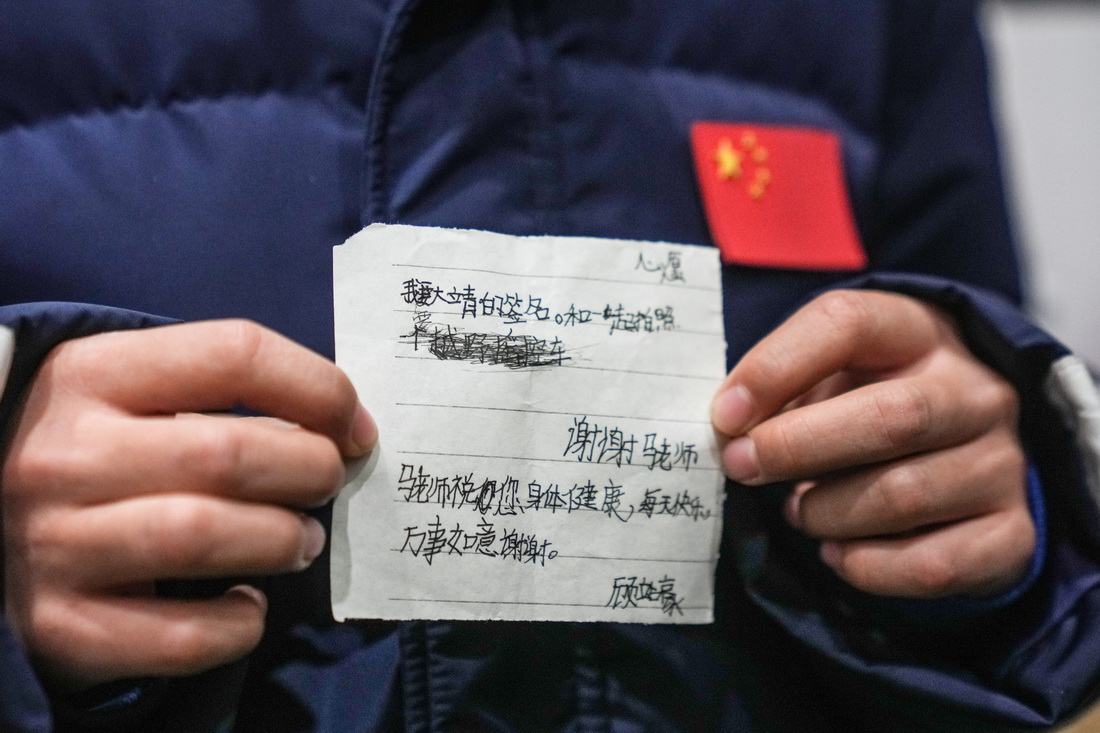 心愿
我要大靖的签名。和一起拍照
越野遥控车
谢谢马老师
马老师祝您身体健康,每天快乐。
万事如意谢谢。